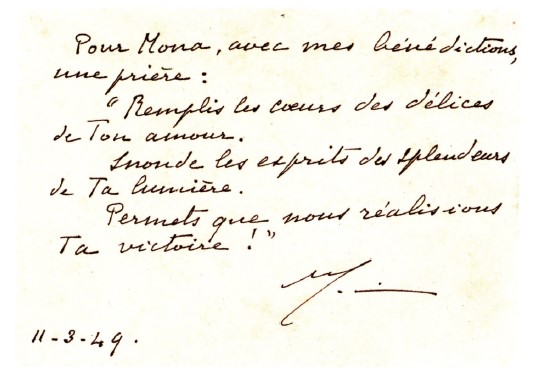 Pour Mona, avec mes bénédictions,
une prière :
“Remplis les cœurs des délices
de Ton amour.
Inonde les esprits des splendeurs
de Ta lumière.
Permets que nous réalisions
Ta victoire !”
11-3-49.